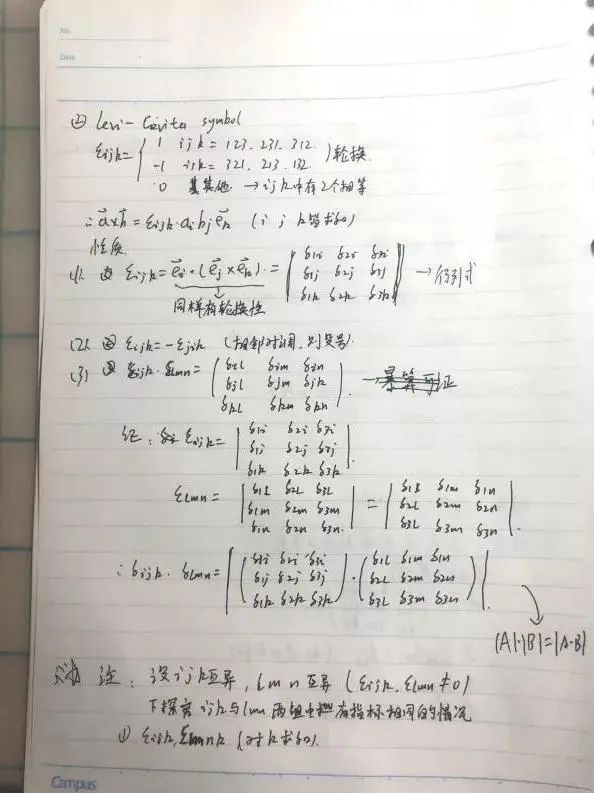 No.
Date
② Levi-Civita symbol
εijk = { 1 ijk = 123. 231. 312. } 轮换
-1 ijk = 321. 213. 132.
0 其他 → ijk中有2个相等
∴ a⃗×b⃗ = εijk·ai bj e⃗k (i j k皆求和)
性质
(1). ① εijk = e⃗i·(e⃗j×e⃗k) = | δ1i δ2i δ3i | → 行列式
| δ1j δ2j δ3j |
| δ1k δ2k δ3k |
同样有轮换性
(2). ② εijk = -εjik (相邻对调,则变号)
(3) ③ εijk·εlmn = | δil δim δin | → 暴算可证
| δjl δjm δjn |
| δkl δkm δkn |
证: εijk = | δ1i δ2i δ3i |
| δ1j δ2j δ3j |
| δ1k δ2k δ3k |
εlmn = | δ1l δ2l δ3l | = | δ1l δ1m δ1n |
| δ1m δ2m δ3m | | δ2l δ2m δ2n |
| δ1n δ2n δ3n | | δ3l δ3m δ3n |
∴ δijk·δlmn = | ( δ1i δ2i δ3i )·( δ1l δ1m δ1n ) |
( δ1j δ2j δ3j ) ( δ2l δ2m δ2n )
( δ1k δ2k δ3k ) ( δ3l δ3m δ3n )
|A|·|B|=|A·B|
讨论: 设ijk互异, lmn互异 (εijk, εlmn≠0)
下探究ijk与lmn两组中有指标相同的情况
① εijk,εlmk (对k求和)
Campus